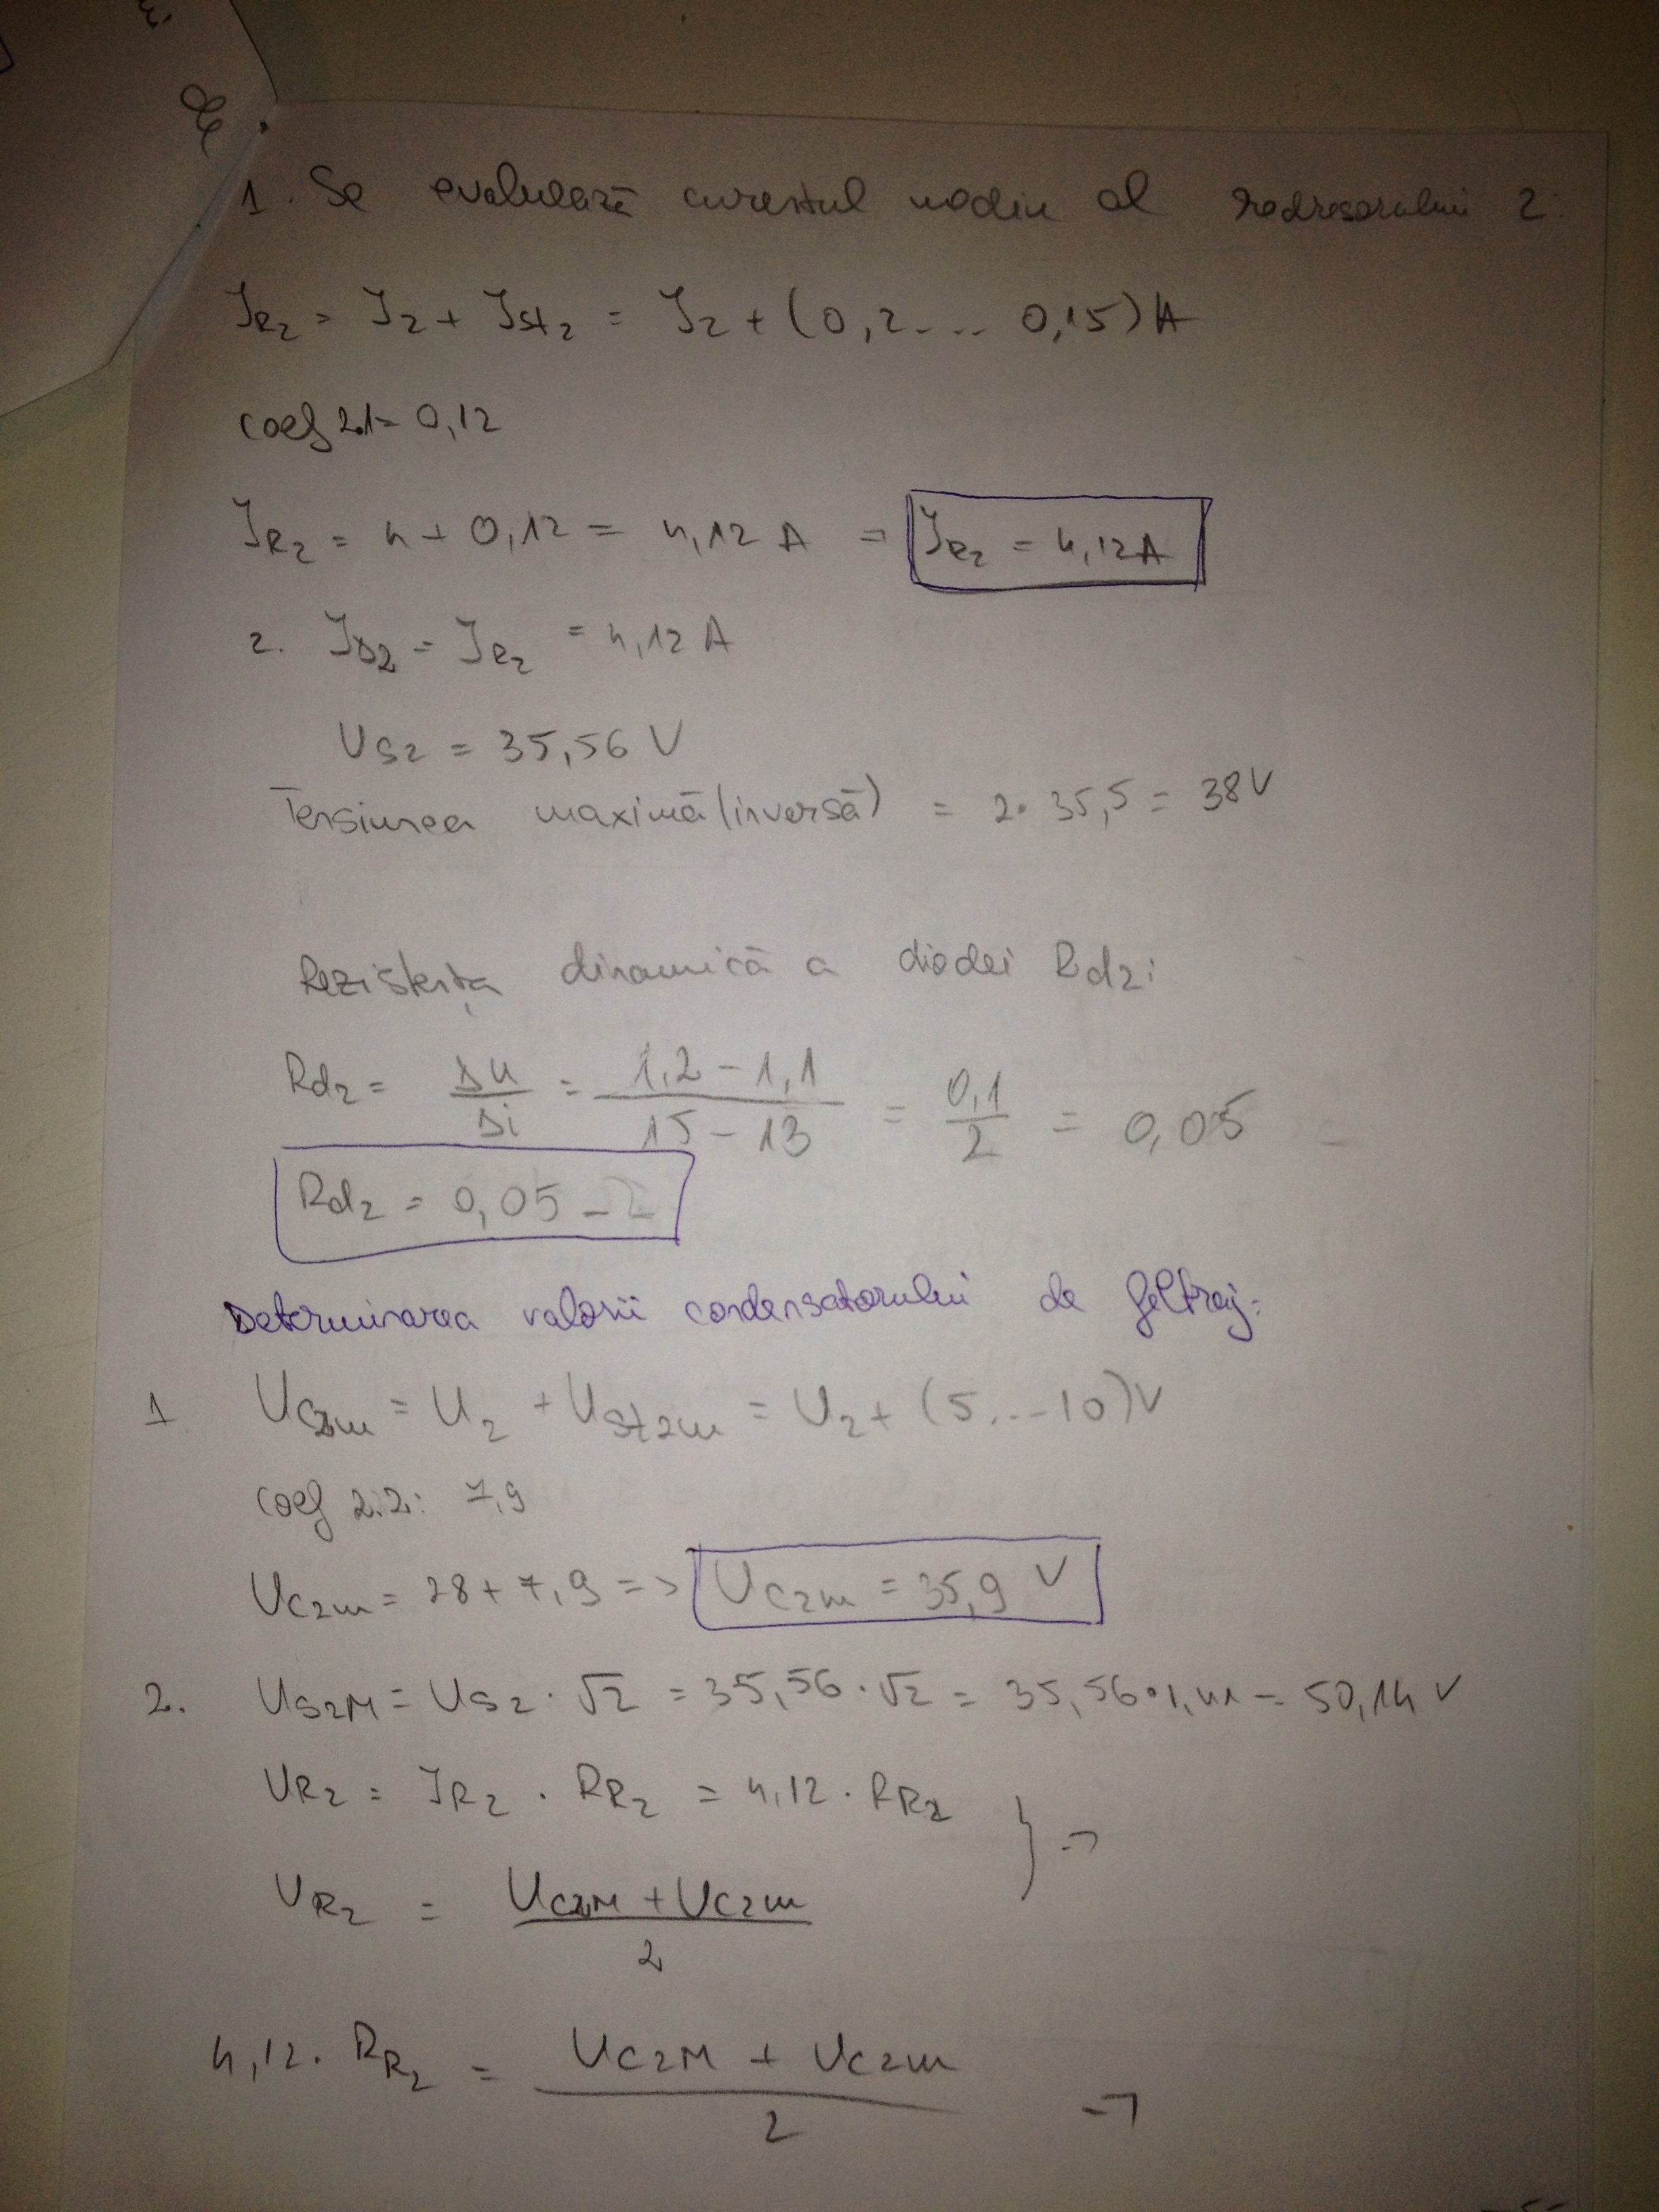 de
1. Se evaluează curentul mediu al redresorului 2:
I_R2 = I_2 + I_st2 = I_2 + (0,2.... 0,15)A
coef 2.1= 0,12
I_R2 = 4 + 0,12 = 4,12 A => I_R2 = 4,12A
2. I_D2 = I_R2 = 4,12 A
U_S2 = 35,56 V
Tensiunea maximă (inversă) = 2 · 35,5 = 38V
Rezistența dinamică a diodei Rd2:
Rd2 = Δu/Δi = (1,2 - 1,1)/(15 - 13) = 0,1/2 = 0,05
Rd2 = 0,05 Ω
Determinarea valorii condensatorului de filtraj:
1 U_C2m = U_2 + U_st2m = U_2 + (5...10)V
coef 2.2: 7,9
U_C2m = 28 + 7,9 => U_C2m = 35,9 V
2. U_S2M = U_S2 · √2 = 35,56 · √2 = 35,56 · 1,41 = 50,14 V
U_R2 = I_R2 · R_R2 = 4,12 · R_R2 } =>
U_R2 = (U_C2M + U_C2m)/2
4,12 · R_R2 = (U_C2M + U_C2m)/2 =>